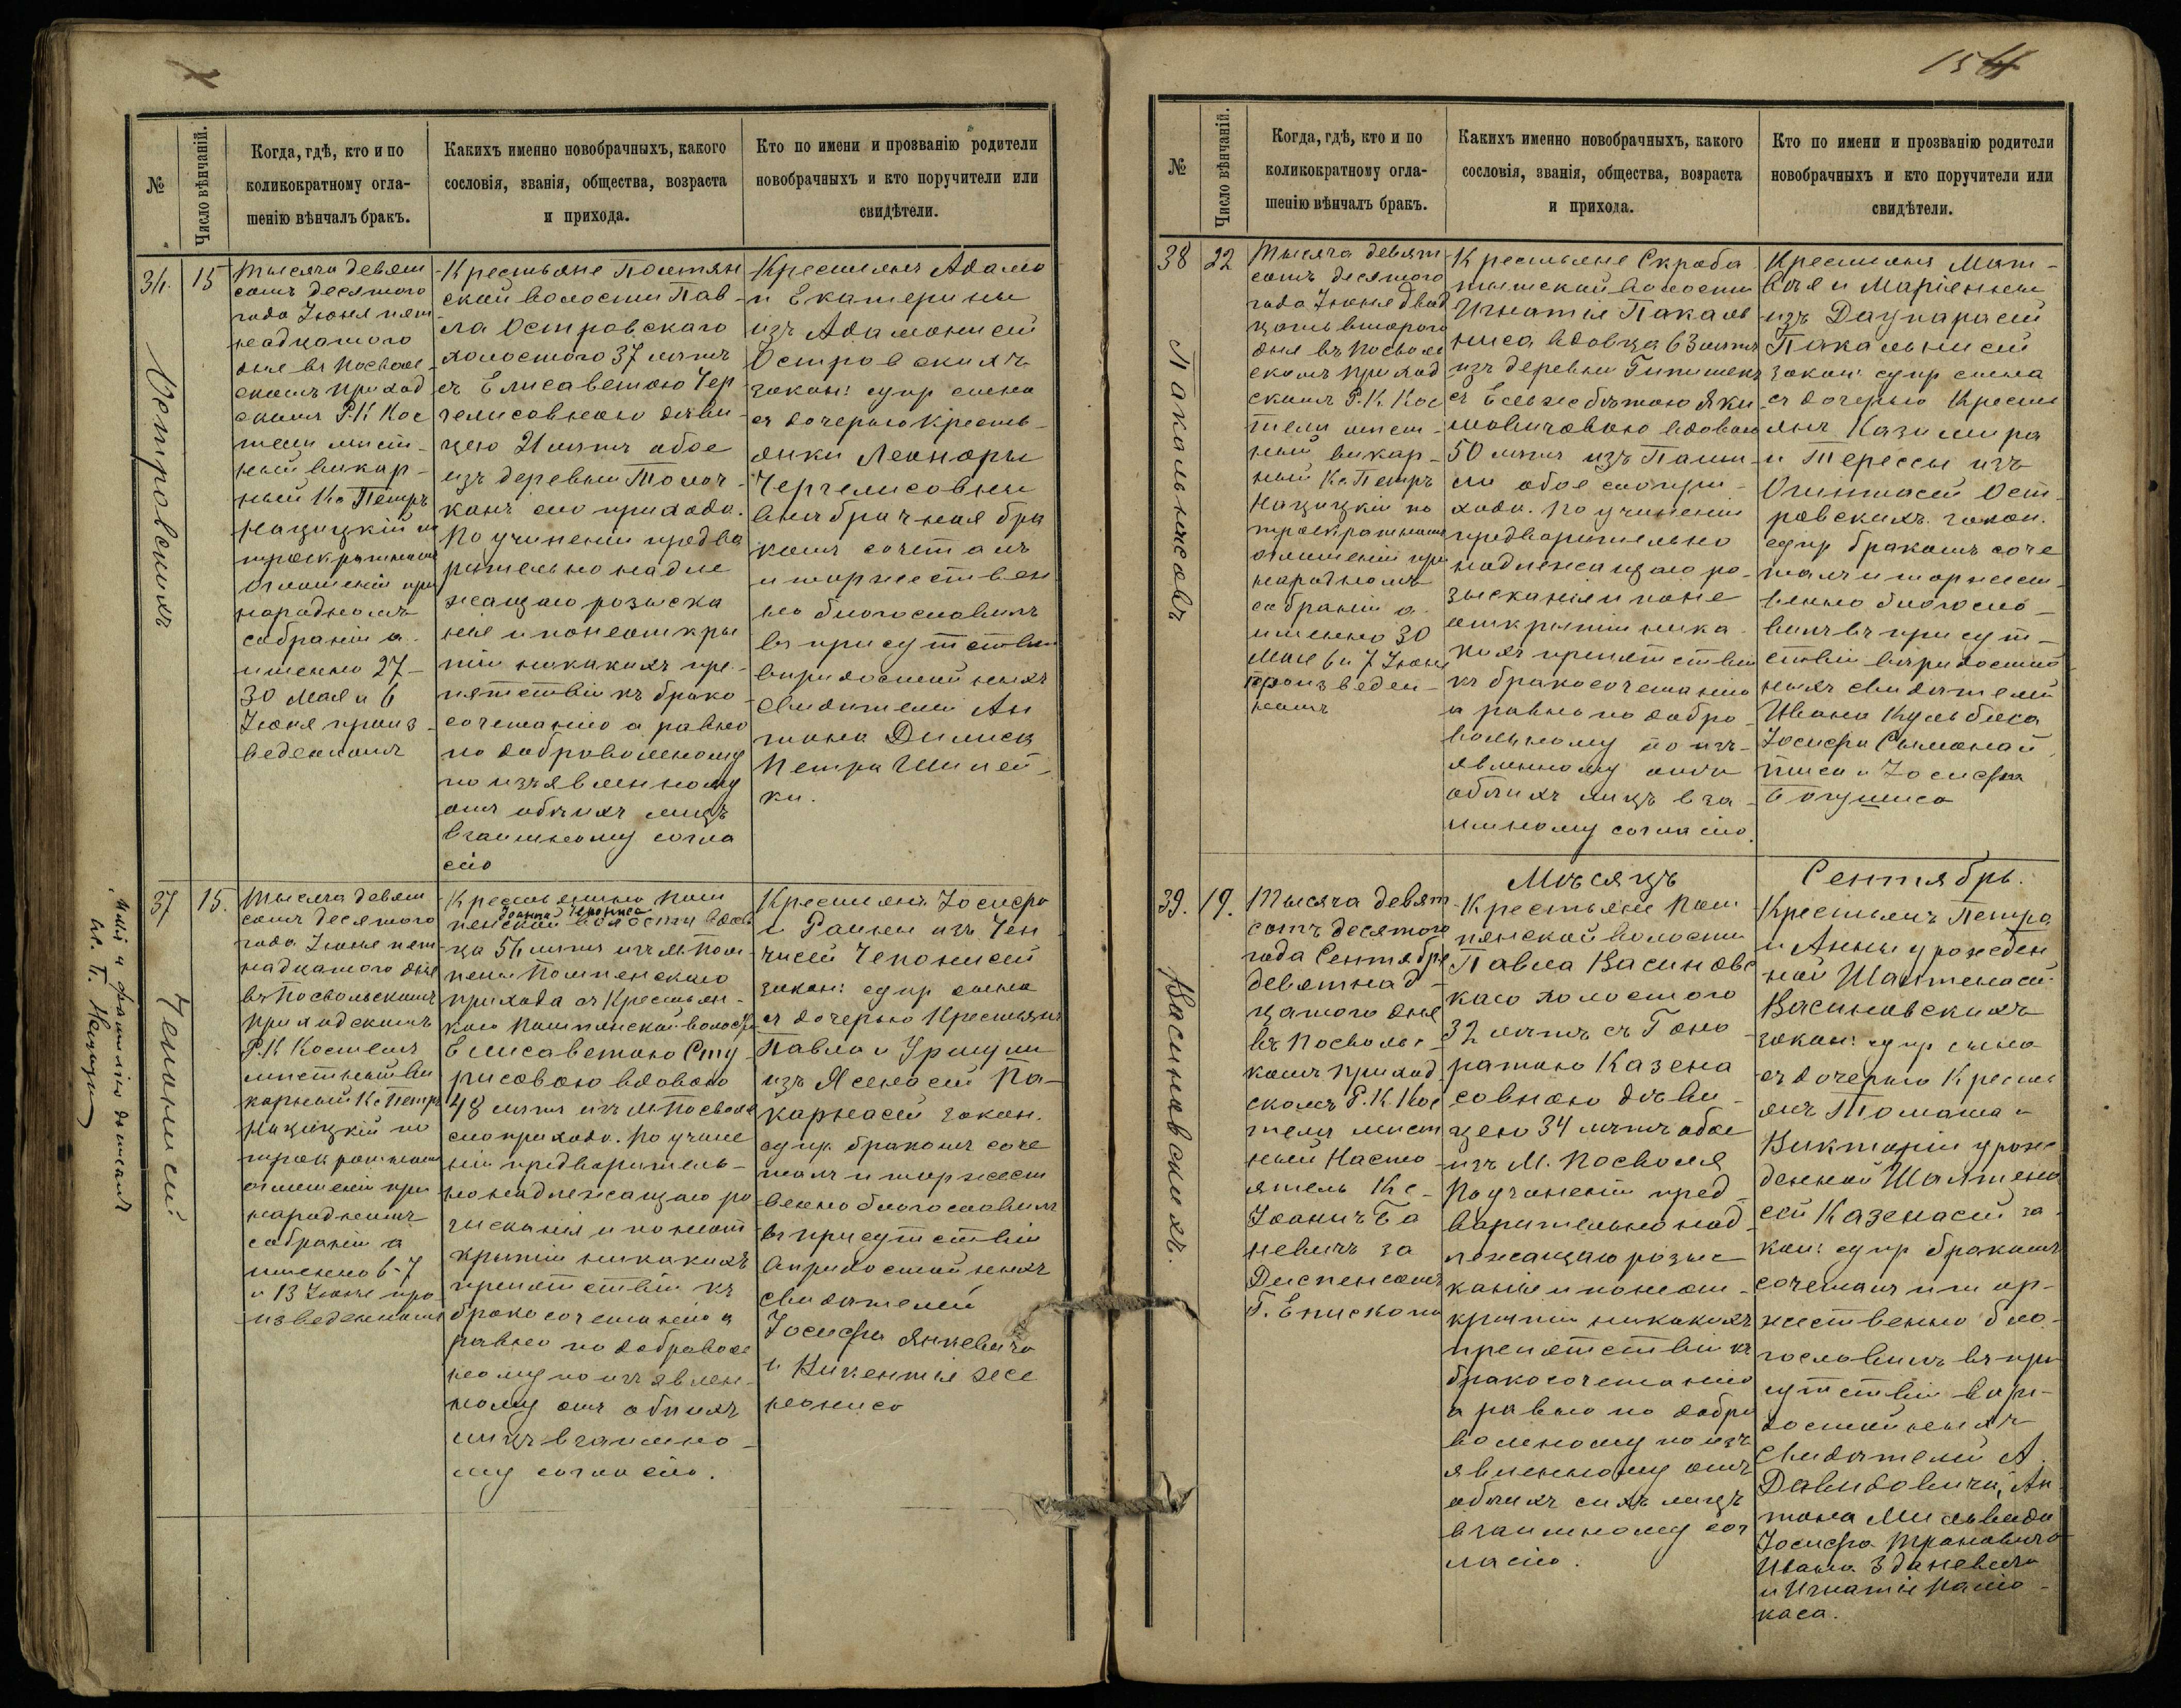 154
№
Число вѣнчаній.
Когда, гдѣ, кто и по
коликократному огла-
шенію вѣнчалъ бракъ.
Какихъ именно новобрачныхъ, какого
сословія, званія, общества, возраста
и прихода.
Кто по имени и прозванію родители
новобрачныхъ и кто поручители или
свидѣтели.
36.
15
Островскихъ
Тысяча девят
сотъ десятого
года Іюня пят
надцатого
дня въ Посволь
скомъ приход
скомъ Р.К Кос
телѣ мѣст-
ный викар-
ный Кс Петръ
Нацицкій по
троекратномъ
оглашеніи при
народномъ
собраніи а
именно 27-
30 Мая и 6
Іюня произ-
веденномъ
Крестьяне Помпян
ской волости Пав-
ла Островскаго
холостого 37 лѣтъ
съ Елисаветою Чер
челисовною дѣви-
цею 21 лѣтъ обое
изъ деревни
сего прихода.
По учиненіи предва
рительно надле
жащаго розыска
нія и по неоткры
тіи никакихъ пре-
пятствій къ брако
сочетанію а равно
по добровольному
по изъявленному
отъ обѣихъ лицъ
взаимному согла
сію
Крестьянъ Адама
и Екатерины
изъ Адамонисей
Островскихъ
закон: супр сына
съ дочерью кресть-
янки Леоноры
Черчелисовны
внѣбрачная бра
комъ сочеталъ
и торжествен
но благословилъ
въ присутствіи
вѣридостойныхъ
свидѣтелей Ан
тона
Петра
37
15.
Чепонисей
Тысяча девят
сотъ десятого
года Іюня пят
надцатого дня
въ Посвольскомъ
приходскомъ
Р.К Костелѣ
мѣстный ви
карный Кс Петръ
Нацицкій по
троекратномъ
оглашеніи при
народномъ
собраніи а
именно 6-7
и 13 Іюня про
изведенномъ
Крестьянина Пом
Іоанна Чепониса
пянской волости вдов
ца 56 лѣтъ изъ м. Пом
пянъ Помпянскаго
прихода съ Крестьян-
кою Помпянской волости
Елисаветою Сту
рисовою вдовою
48 лѣтъ изъ м Посволя
сего прихода. По учине
ніи предваритель-
но надлежащаго ро
зысканія и по неот
крытіи никакихъ
препятствій къ
бракосочетанію а
равно по доброволь
ному по изъявлен-
ному отъ обѣихъ
лицъ взаимно-
му согласію.
Крестьянъ Іосифа
и Раины изъ Чен
Чепонисей
закон: супр сына
съ дочерью Крестьянъ
Павла и Уршули
изъ
закон.
супр. бракомъ соче
талъ и торжест
венно благословилъ
въ присутствіи
вѣридостойныхъ
свидѣтелей
Іосифа Янкевича
и Викентія
имя и фамилію дописалъ
Кс. П. Нацицкій
№
Число вѣнчаній.
Когда, гдѣ, кто и по
коликократному огла-
шенію вѣнчалъ бракъ.
Какихъ именно новобрачныхъ, какого
сословія, званія, общества, возраста
и прихода.
Кто по имени и прозванію родители
новобрачныхъ и кто поручители или
свидѣтели.
38
22
Пакальнисовъ
Тысяча девят
сотъ десятого
года Іюня двад
цать второго
дня въ Посволь
скомъ приход
скомъ Р. К. Кос
телѣ мѣст-
ный викар-
ный Кс Петръ
Нацицкій по
троекратномъ
оглашеніи при
народномъ
собраніи а
именно 30
Мая 6 и 7 Іюня
произведен-
номъ
Крестьяне Скроба
тышской волости
Игнатія Пакаль
ниса вдовца 63 лѣтъ
изъ деревни
съ Ельжебѣтою Яки
мовичовою вдовою
50 лѣтъ изъ
обое сего при-
хода. По учиненіи
предварительно
надлежащаго ро-
зысканія и по не
открытіи ника-
кихъ препятствій
къ бракосочетанію
а равно по добро-
вольному по изъ-
явленному отъ
обѣихъ лицъ вза-
имному согласію.
Крестьянъ Мат-
вѣя и Маріянны
изъ
Пакальнисей
закон: супр сына
съ дочерью Кресть
янъ Казимира
и Терессы изъ
Ост-
ровскихъ. закон.
супр бракомъ соче
талъ и торжест-
венно благосло-
вилъ въ присут-
ствіи вѣридостой
ныхъ свидѣтелей
Ивана
Іосифа
и Іосифа
Мѣсяцъ
Сентябрь.
39.
19.
Васинавскихъ.
Тысяча девят
сотъ десятого
года Сентября
девятнад-
цатого дня
въ Посволь-
скомъ приход
скомъ Р. К. Кос
телѣ мѣст
ный Насто
ятель Кс-
Іоаннъ
за
Диспенсомъ
Г. Епископа
Крестьяне Пом
пянской волости
Павла Васиновс
каго холостого
32 лѣтъ съ Гоно
ратою Казена
совною дѣви-
цею 34 лѣтъ обое
изъ М. Посволя
По учиненіи пред
варительно над
лежащаго розыс
канія и по неот-
крытіи никакихъ
препятствій къ
бракосочетанію
а равно по добро
вольному по изъ
явленному отъ
обѣихъ сихъ лицъ
взаимному сог
ласію.
Крестьянъ Петра
и Анны урожден
ной
Васиновскихъ
закон: супр сына
съ дочерью Кресть
янъ Томаша и
Викторіи урож
денной
Казенасей за-
кон: супр бракомъ
сочеталъ и тор-
жественно бла-
гословилъ въ при
сутствіи вѣри-
достойныхъ
свидѣтелей А.
Давидовича, Ан
тона
Іосифа
Ивана Зданевича
и Игнатія